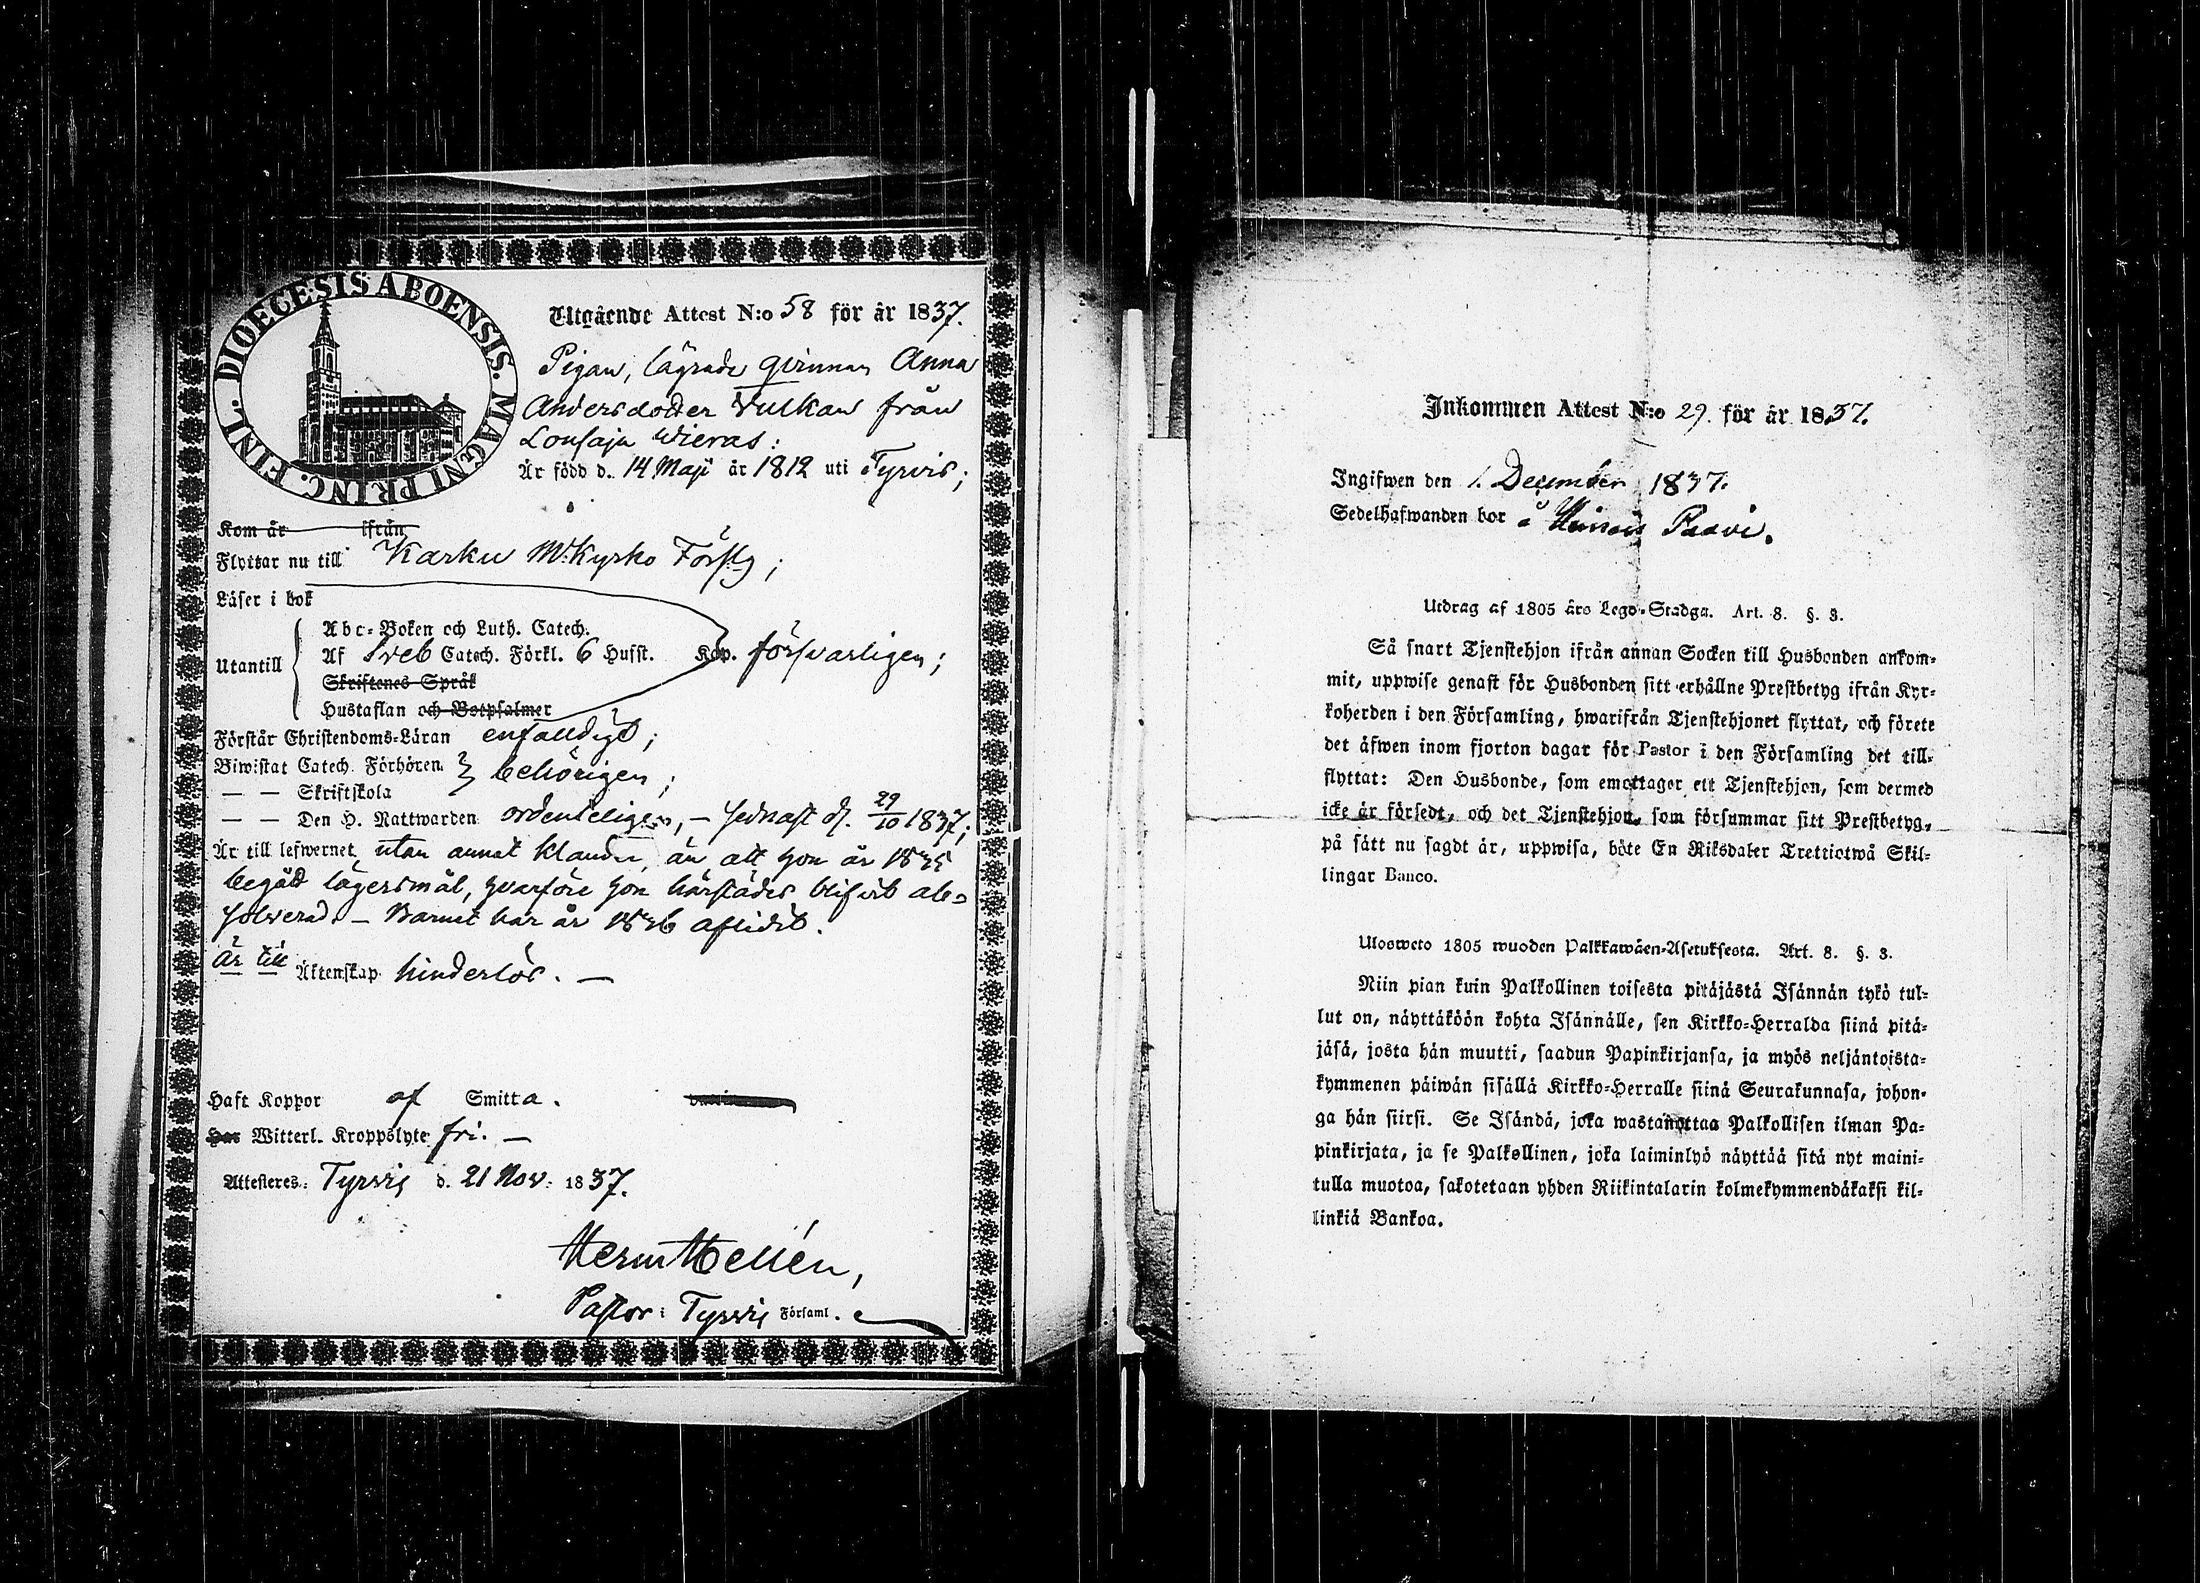 DIOECESIS ABOENSIS. MAGNI PRINC. FINL.
Utgående Attest N:o 58 för år 1837.
Pigan, lägrade qvinnan Anna
Andersdotter Vulkan från
Lousaja Wieras:
Är född d. 14 Maji år 1812 uti Tyrvis;
Kom år ifrån
Flyttar nu till Karku M.Kyrko Förslg;
Läser i bok
Utantill
Abc-Boken och Luth. Catech.
Af Sveb Catech. Förkl. 6 Husst. Kap. försvarligen;
Skriftenes Språk
Hustaflan och Botpsalmer
Förstår Christendoms-Läran enfaldigt;
Biwistat Catech. Förhören } behörigen;
— — Skriftskola
— — Den H. Nattwarden ordenteligen, — sednast d. 29/10 1837;
Är till lefwernet utan annat klander, än att hon år 1835
begått lägersmål, hvarföre hon härstädes blifvit ab=
solverad. — Barnet har år 1836 aflidit.
Är till Äktenskap hinderlös. —
Haft Koppor af Smitta.
Har Witterl. Kroppslyte fri. —
Attesteres: Tyrvis d. 21 Nov. 1837.
Herm Hellén,
Pastor i Tyrvis Församl.
Inkommen Attest N:o 29. för år 1837.
Ingifwen den 1. December 1837.
Sedelhafwanden bor å Paavi.
Utdrag af 1805 års Lego-Stadga. Art. 8. §. 3.
Så snart Tjenstehjon ifrån annan Socken till Husbonden ankom-
mit, uppwise genast för Husbonden sitt erhållne Prestbetyg ifrån Kyr-
koherden i den Församling, hwarifrån Tjenstehjonet flyttat, och förete
det äfwen inom fjorton dagar för Pastor i den Församling det till-
flyttat: Den Husbonde, som emottager ett Tjenstehjon, som dermed
icke är försedt, och det Tjenstehjon, som försummar sitt Prestbetyg,
på sätt nu sagdt är, uppwisa, böte En Riksdaler Trettiotwå Skil-
lingar Banco.
Ulosweto 1805 wuoden Palkkawäen-Asetuksesta. Art. 8. §. 3.
Niin pian kuin Palkollinen toisesta pitäjästä Isännän tykö tul-
lut on, näyttäköön kohta Isännälle, sen Kirkko-Herralda siinä pitä-
jäsä, josta hän muutti, saadun Papinkirjansa, ja myös neljäntoista-
kymmenen päiwän sisällä Kirkko-Herralle siinä Seurakunnasa, johon-
ga hän siirsi. Se Isändä, joka wastanottaa Palkollisen ilman Pa-
pinkirjata, ja se Palkollinen, joka laiminlyö näyttää sitä nyt maini-
tulla muotoa, sakotetaan yhden Riikintalarin kolmekymmendäkaksi kil-
linkiä Bankoa.